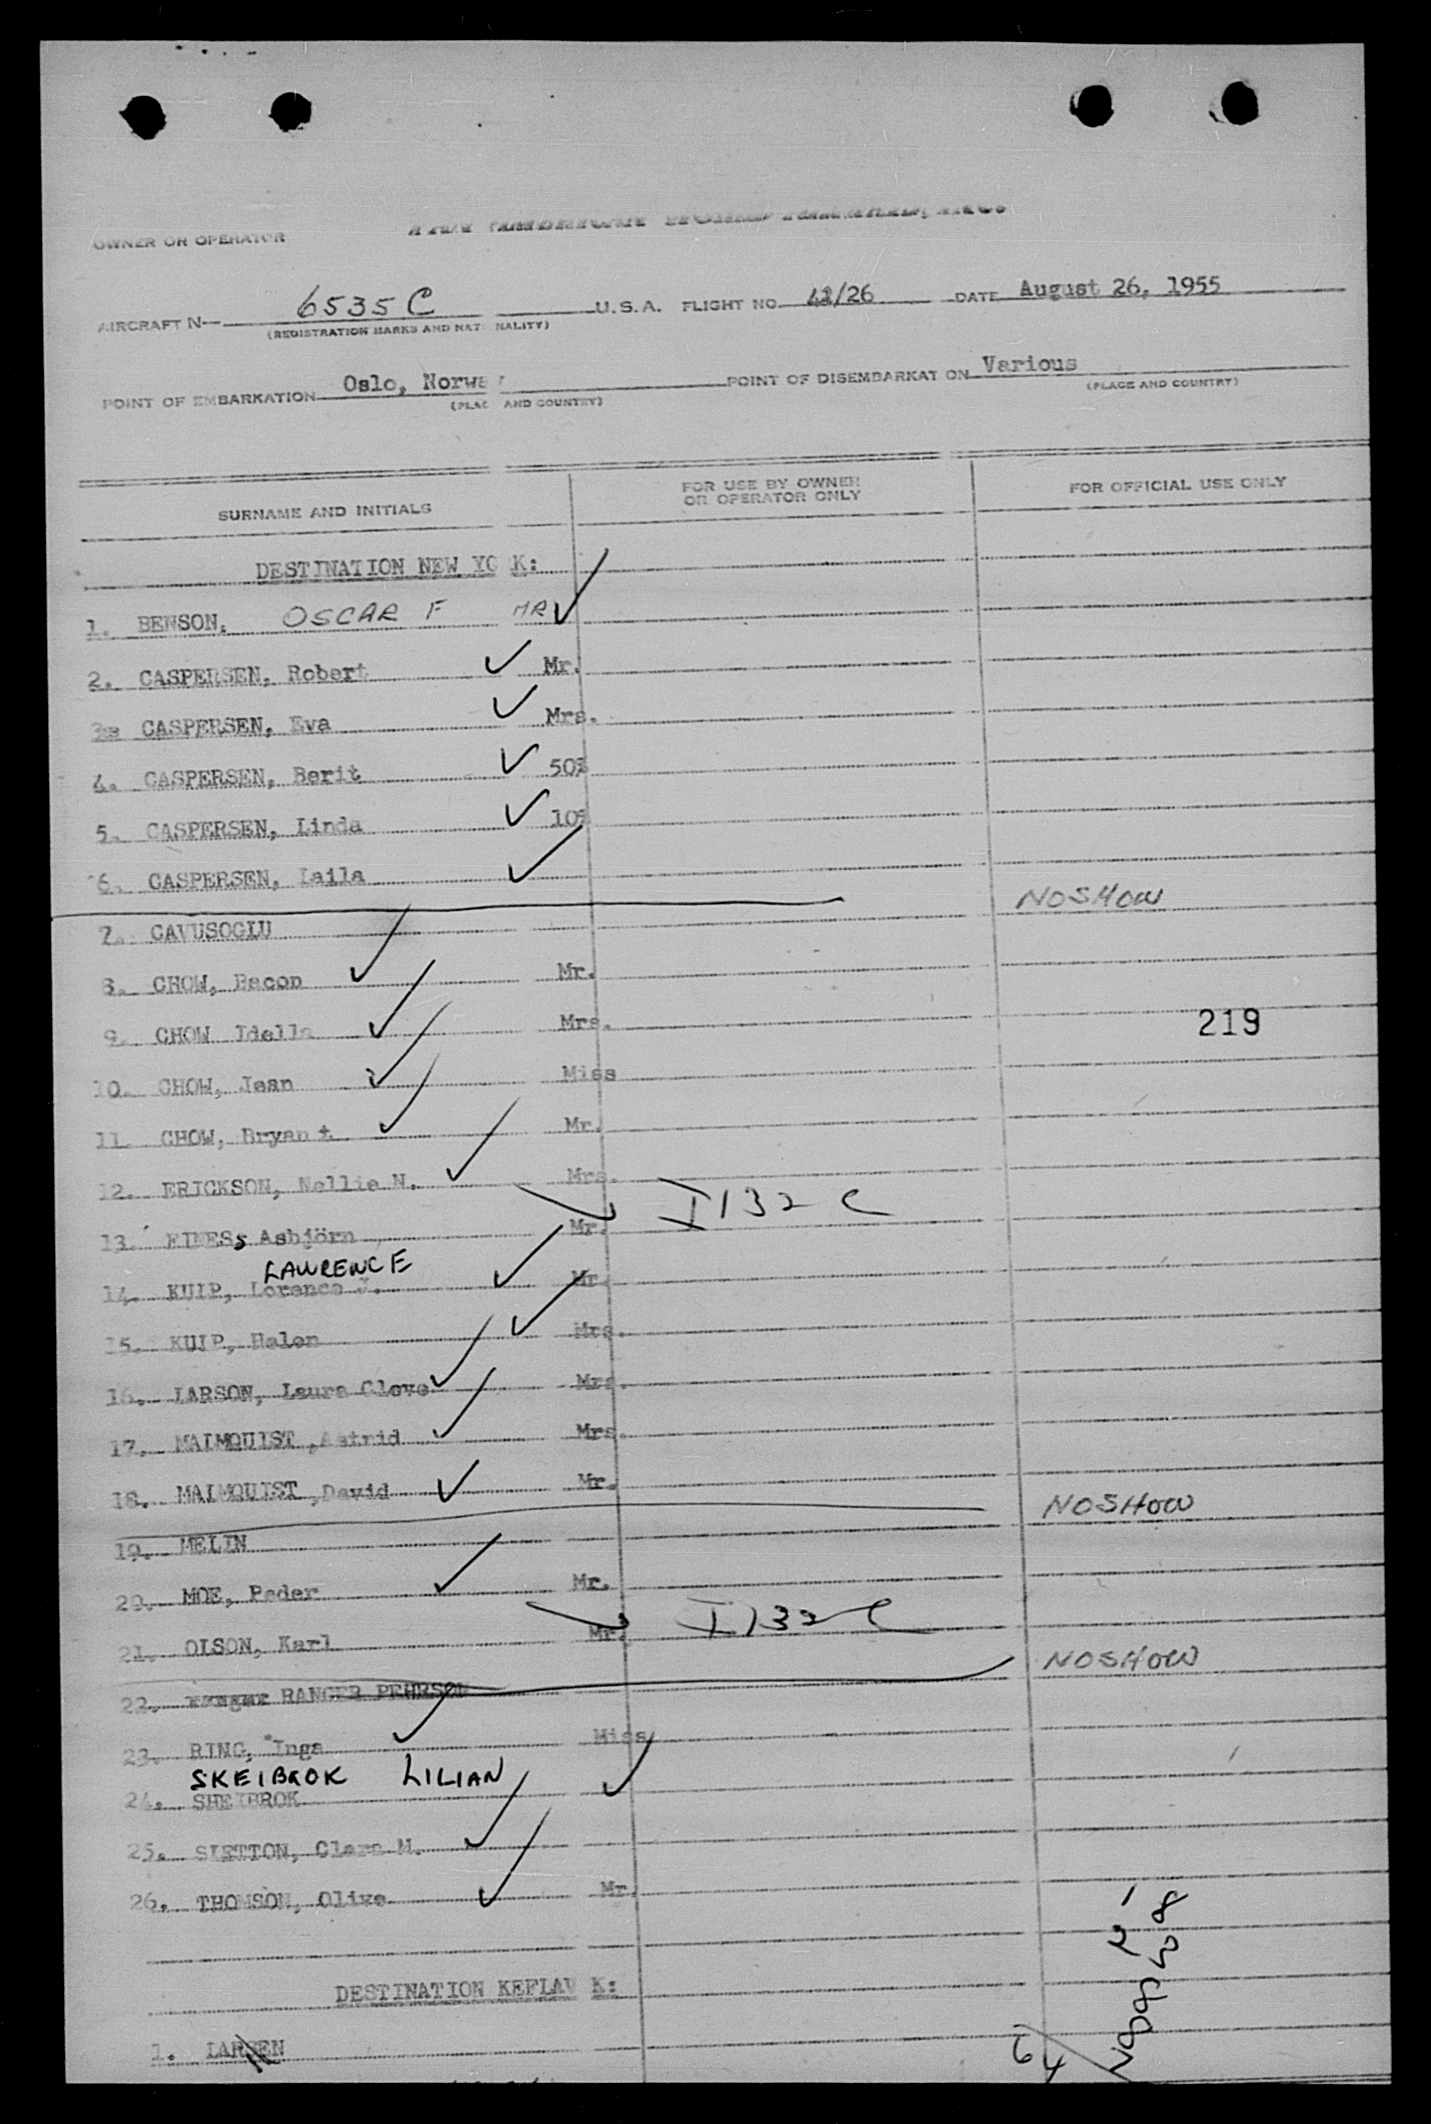 PAN AMERICAN WORLD AIRWAYS, INC.
OWNER OR OPERATOR
AIRCRAFT N— 6535C U.S.A. FLIGHT NO. 42/26 DATE August 26, 1955
(REGISTRATION MARKS AND NATIONALITY)
POINT OF EMBARKATION Oslo, Norway POINT OF DISEMBARKATION Various
(PLACE AND COUNTRY) (PLACE AND COUNTRY)
SURNAME AND INITIALS FOR USE BY OWNER OR OPERATOR ONLY FOR OFFICIAL USE ONLY
DESTINATION NEW YORK:
1. BENSON, OSCAR F MR
2. CASPERSEN, Robert Mr.
3. CASPERSEN, Eva Mrs.
4. CASPERSEN, Berit 50%
5. CASPERSEN, Linda 10%
6. CASPERSEN, Laila
NOSHOW
7. CAVUSOGLU
8. CHOW, Bacon Mr.
9. CHOW Idella Mrs.
219
10. CHOW, Jean Miss
11. CHOW, Bryant Mr.
12. ERICKSON, Nellie N. Mrs.
I 132 C
13. EINES, Asbjörn Mr.
LAWRENCE
14. KUIP, Lorence J. Mr.
15. KUIP, Helen Mrs.
16. LARSON, Laura Clove Mrs.
17. MALMQUIST, Astrid Mrs.
18. MALMQUIST, David Mr.
NOSHOW
19. MELIN
20. MOE, Peder Mr.
I 132 C
21. OLSON, Karl Mr.
NOSHOW
22. RANGER PEHRSON
23. RING, Inga Miss
SKEIBROK LILIAN
24. SHEIBROK
25. SLETTON, Clara M.
26. THOMSON, Olive Mr.
DESTINATION KEFLAVIK:
1. LARSEN